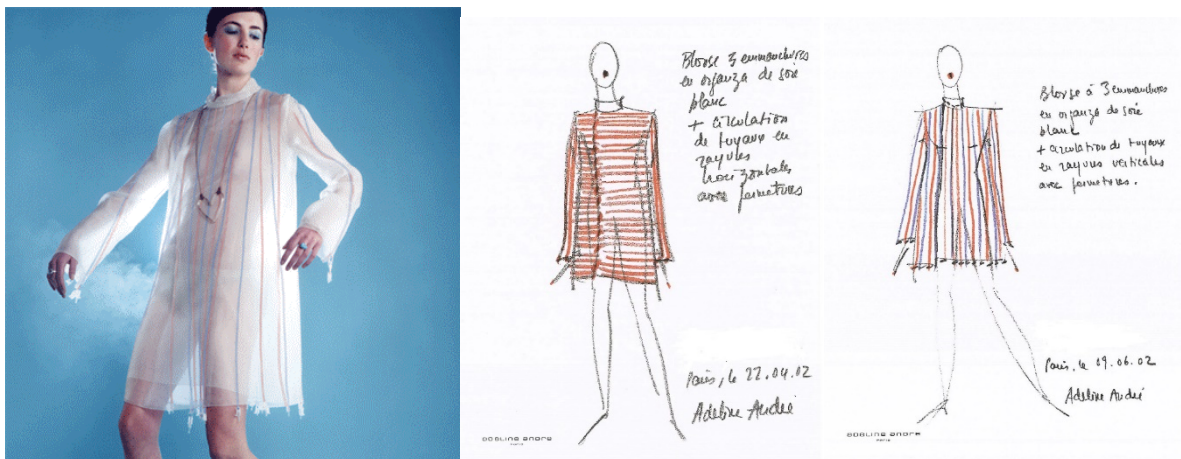 Blouse 3 emmanchures
en organza de soie
blanc
+ circulation
de tuyaux en
rayures
horizontales
avec fermetures
Paris, le 22.04.02
Adeline André
adeline andre
paris
Blouse à 3 emmanchures
en organza de soie
blanc
+ circulation de tuyaux
en rayures verticales
avec fermetures.
Paris, le 09.06.02
Adeline André
adeline andre
paris